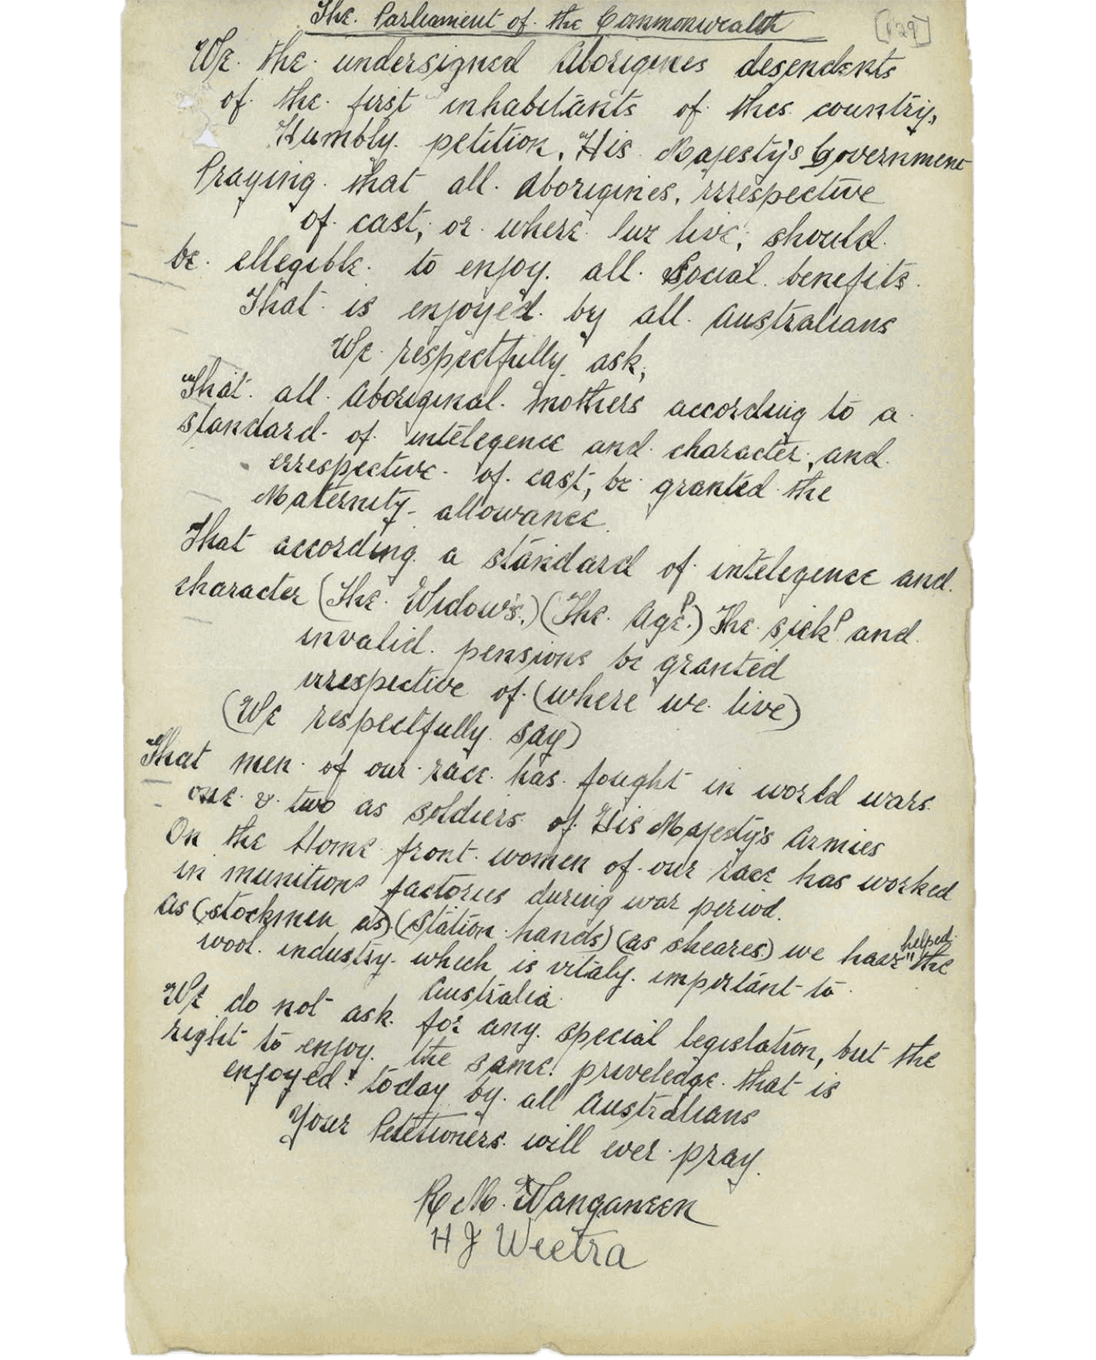 The Parliament of the Commonwealth
[129]
We the undersigned Aborigines desendents
of the first inhabitants of this country,
Humbly petition, His Majesty's Government
Praying that all Aborigines, irrespective
of cast, or where we live, should
be ellegible to enjoy all Social benefits
That is enjoyed by all Australians
We respectfully ask,
That all Aboriginal Mothers according to a
standard of intelegence and character, and
errespective of cast, be granted the
Maternity allowance
That according a standard of intelegence and
character (The Widow's,) (The Age) The sick and
invalid pensions be granted
irrespective of (where we live)
(We respectfully say)
That men of our race has fought in world wars
one & two as soldiers of His Majesty's Armies
On the Home front women of our race has worked
in munitions factories during war period.
As (stockmen as) (station hands) (as sheares) we have helped the
wool industry which is vitaly important to
Australia
We do not ask for any special legislation, but the
right to enjoy the same priveledge that is
enjoyed today by all Australians
Your Petitioners will ever pray.
R M. Wanganeen
H J Weetra